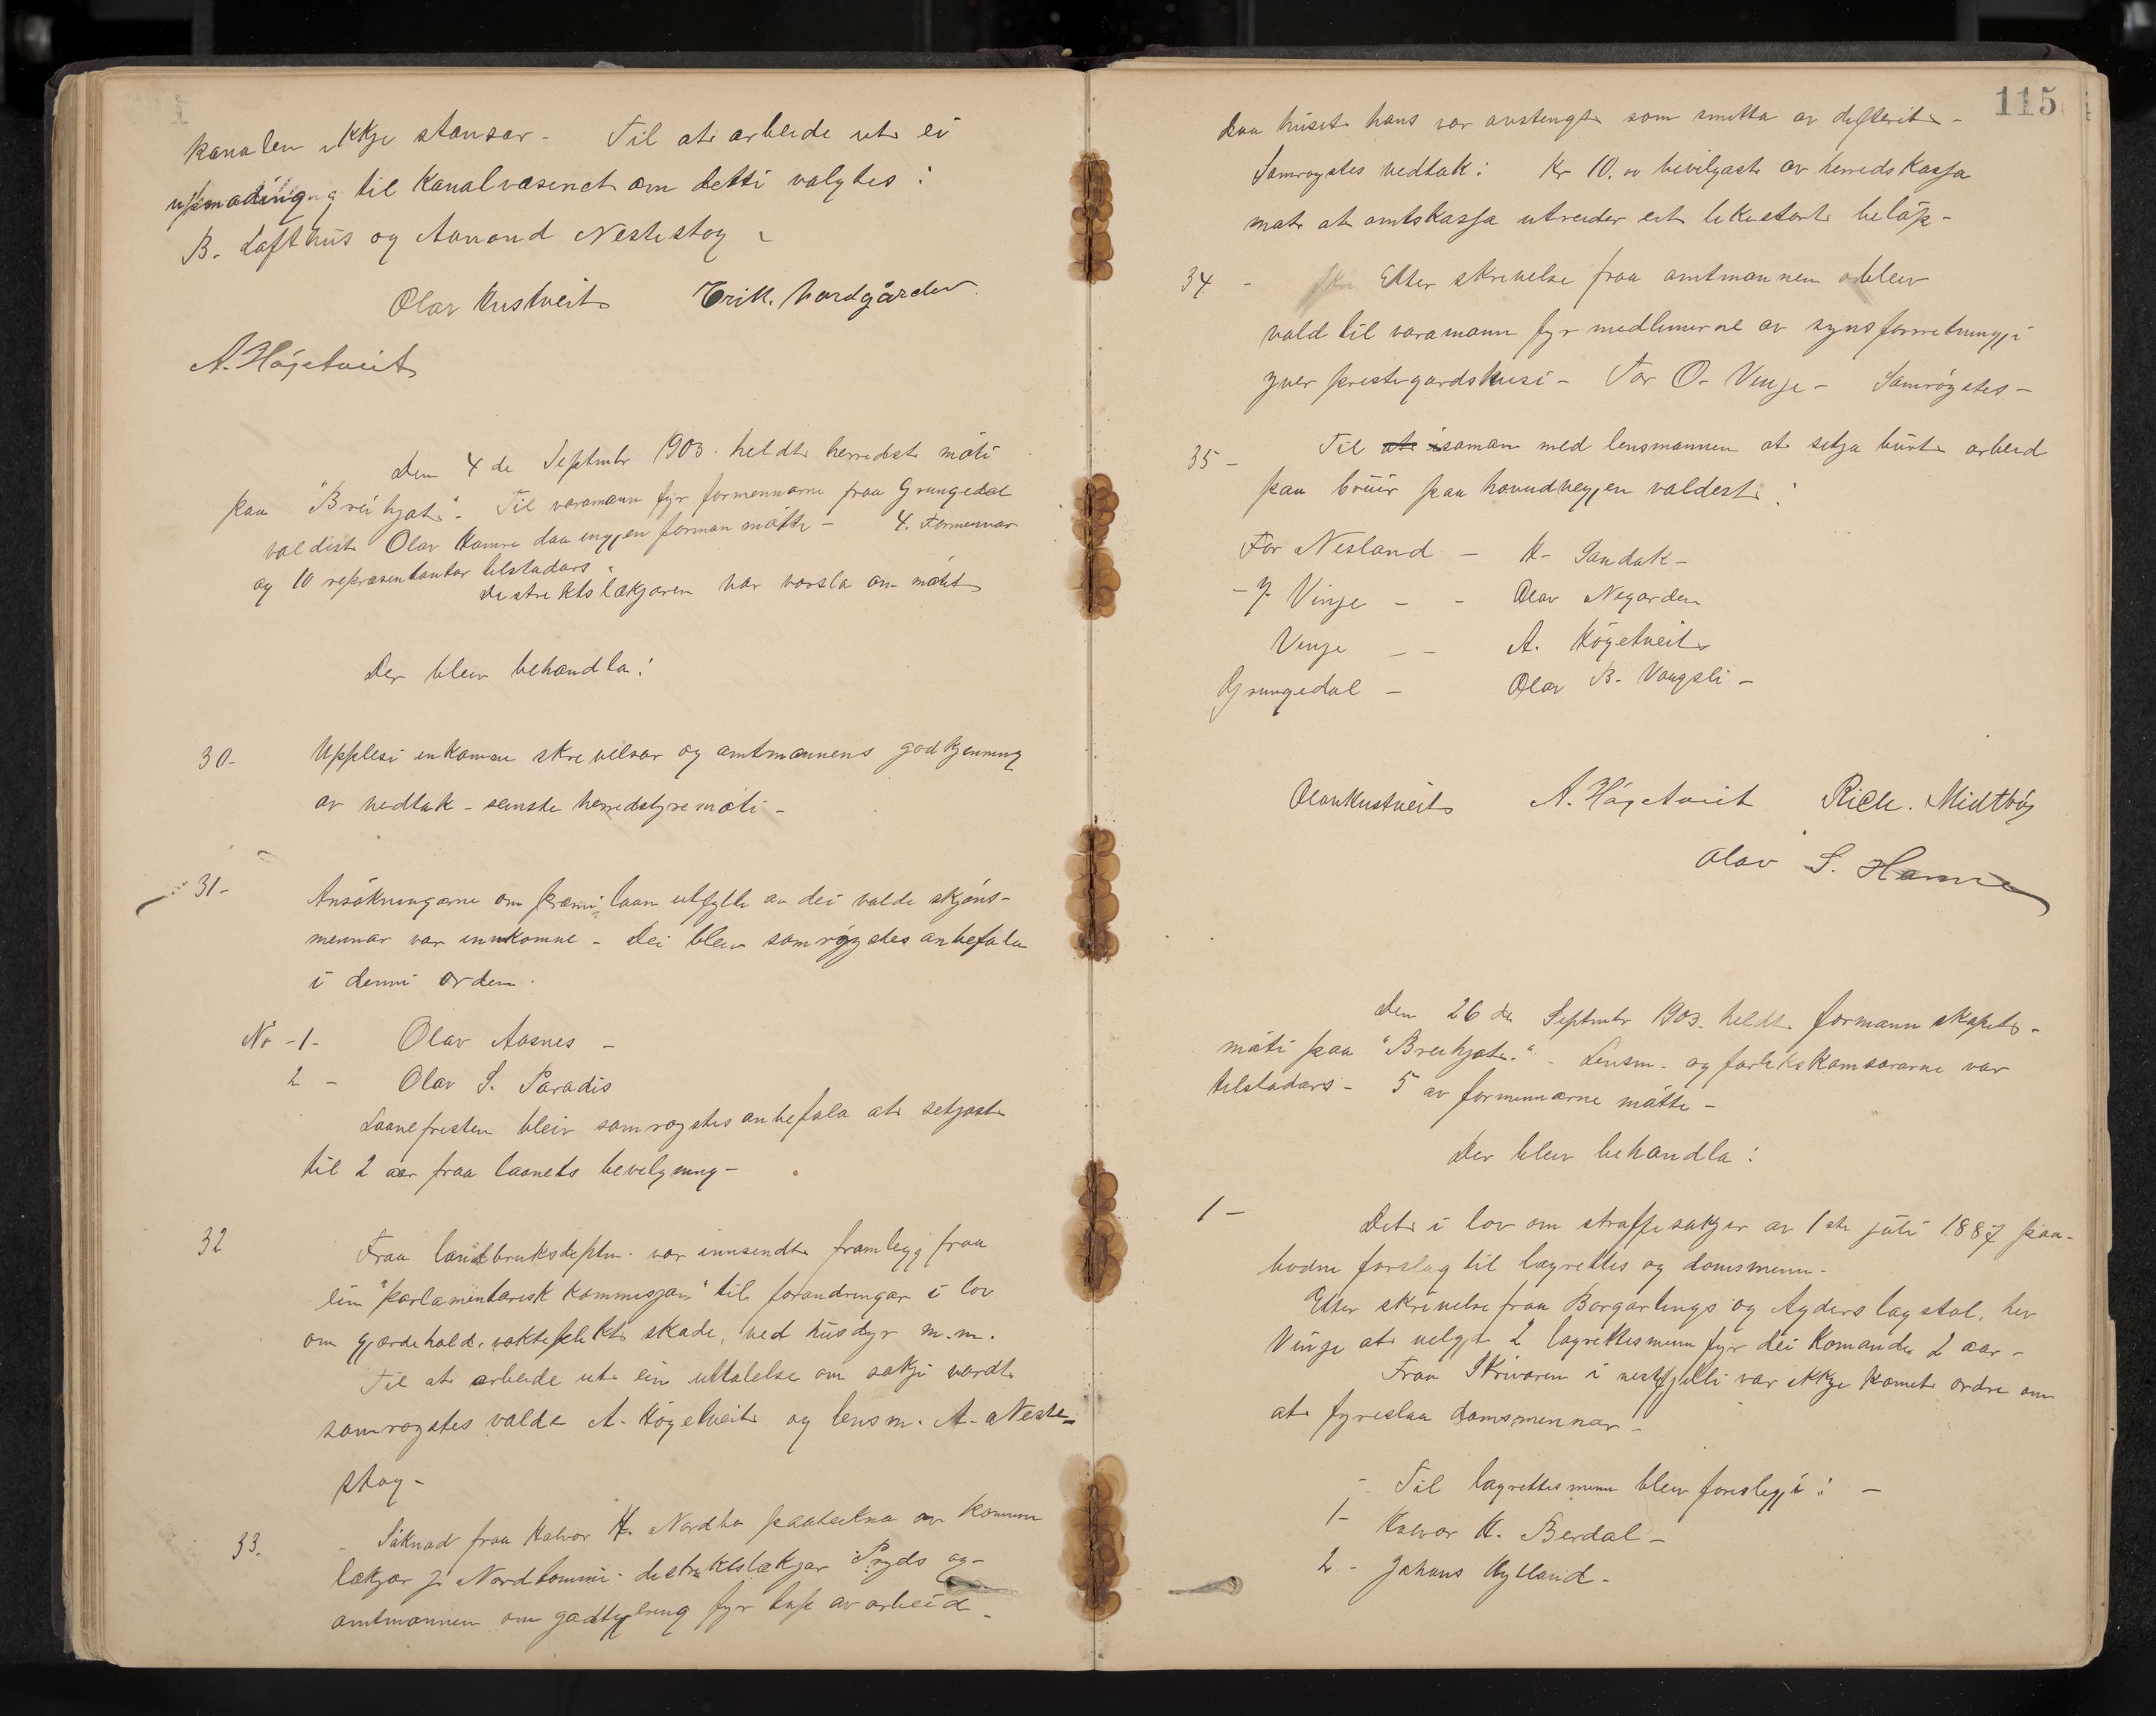 kanalen ikkje stansar - Til at arbeide ut ei
uppmading til Kanalvæsenet om detti valgtes:
B. Lofthus og Aanond Nestestog -
Olav Kustveit Erik. hardgården
A. Högetveit
Den 4 de Septmbr 1903. heldt herredst möti
paa "Breihjat". Til varamann fyr formennarne fraa Grungedal
valdist Olav Hamre daa ingjen forman mötte - 4. Formennar
og 10 repræsentantar tilstadars -
Distriktslækjaren var varsla om mötet
Der bleiv behandla:
30- Upplesi innkomne skrivelsar og amtmannens godkjenning
av vedtak - seinste herredstyremöti -
31- Ansökningarne om præmi laan utfyllte av dei valde skjöns-
mennar var innkomne - Dei bleiv samröystes anbefala
i denni orden.
No -1- Olav Aasnes -
2 - Olav S. Paradis
Laanefristen bleiv samrøystes anbefala at setjast
til 2 aar fraa laanets bevilgning -
32 Fraa landbruksdeptm. var innsendt framlegg fraa
ein "parlamentarisk kommisjon" til forandringar i lov
om gjærdehald, vakteplikt skade, ved husdyr m.m.
Til at arbeide ut ein uttalelse om sakji vardt
samrøystes valde A. Högetveit og lensm. A. Neste-
stog -
33. Söknad fraa Halvor H. Nordbø paateikna av kommu
lækjar Nordtommi. distriktslækjar Pryds og -
amtmannen om godtgjering fyr tap av arbeid -
115
daa huset hans var avstengt som smitta av difterit -
Samrøystes vedtak: Kr 10.00 bevilgast av herredskassa
mot at amtskassa utreder eit likestort beløp -
34 - Etter skrivelse fraa amtmannen bleiv
vald til varamann fyr medlemerne av synsforretningji
yver prestegardshusi - Tor O. Vinje - Samröystes -
35 - Til at isaman med lensmannen at setja burt arbeid
paa bruir paa hovudvegjen valdest:
For Nesland - H. Sandok -
-"- Vinje - - Olav Negarden
Vinje - - A. Högetveit
Grungedal - Olav B. Vaagsli -
Olav Kustveit A. Högetveit Rich. Midtböy
Olav S. Hamre
Den 26 de Septmbr 1903. heldt formannskapet -
möti paa "Breihjat." - Lensm. og forlikskomsararne var
tilstadars - 5 av formennarne mötte -
Der bleiv behandla:
1 - Det i lov om straffesakjer av 1 ste juli 1887 paa-
bodne forslag til lagrettes og domsmenn -
Etter skrivelse fraa Borgartings og Agders lagstol, hev
Vinje at velgje 2 lagrettesmenn fyr dei komande 2 aar -
Fraa Skrivaren i vestfjelli var ikkje komet ordre om
at fyreslaa domsmennar -
- Til lagrettesmenn bleiv foreslegji: -
1- Halvor H. Berdal -
2 - Johans Nylland -